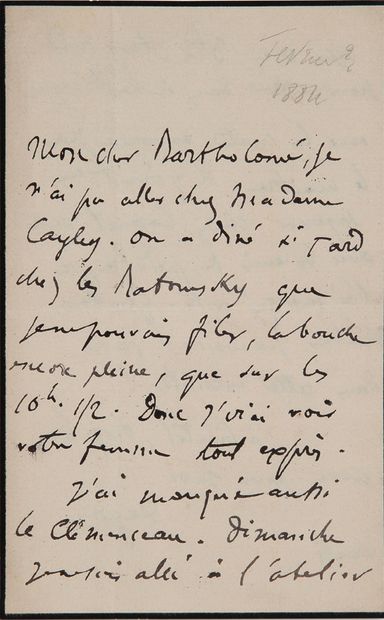 Février
1884
Mon cher Bartholomé, je
n'ai pu aller chez Madame
Cayley. on a diné si tard
chez les Ratomsky que
je ne pouvais filer, la bouche
encore pleine, que sur les
10h. 1/2. Donc j'irai voir
votre femme tout exprès.
J'ai manqué aussi
le Clémenceau. dimanche
je suis allé à l'atelier